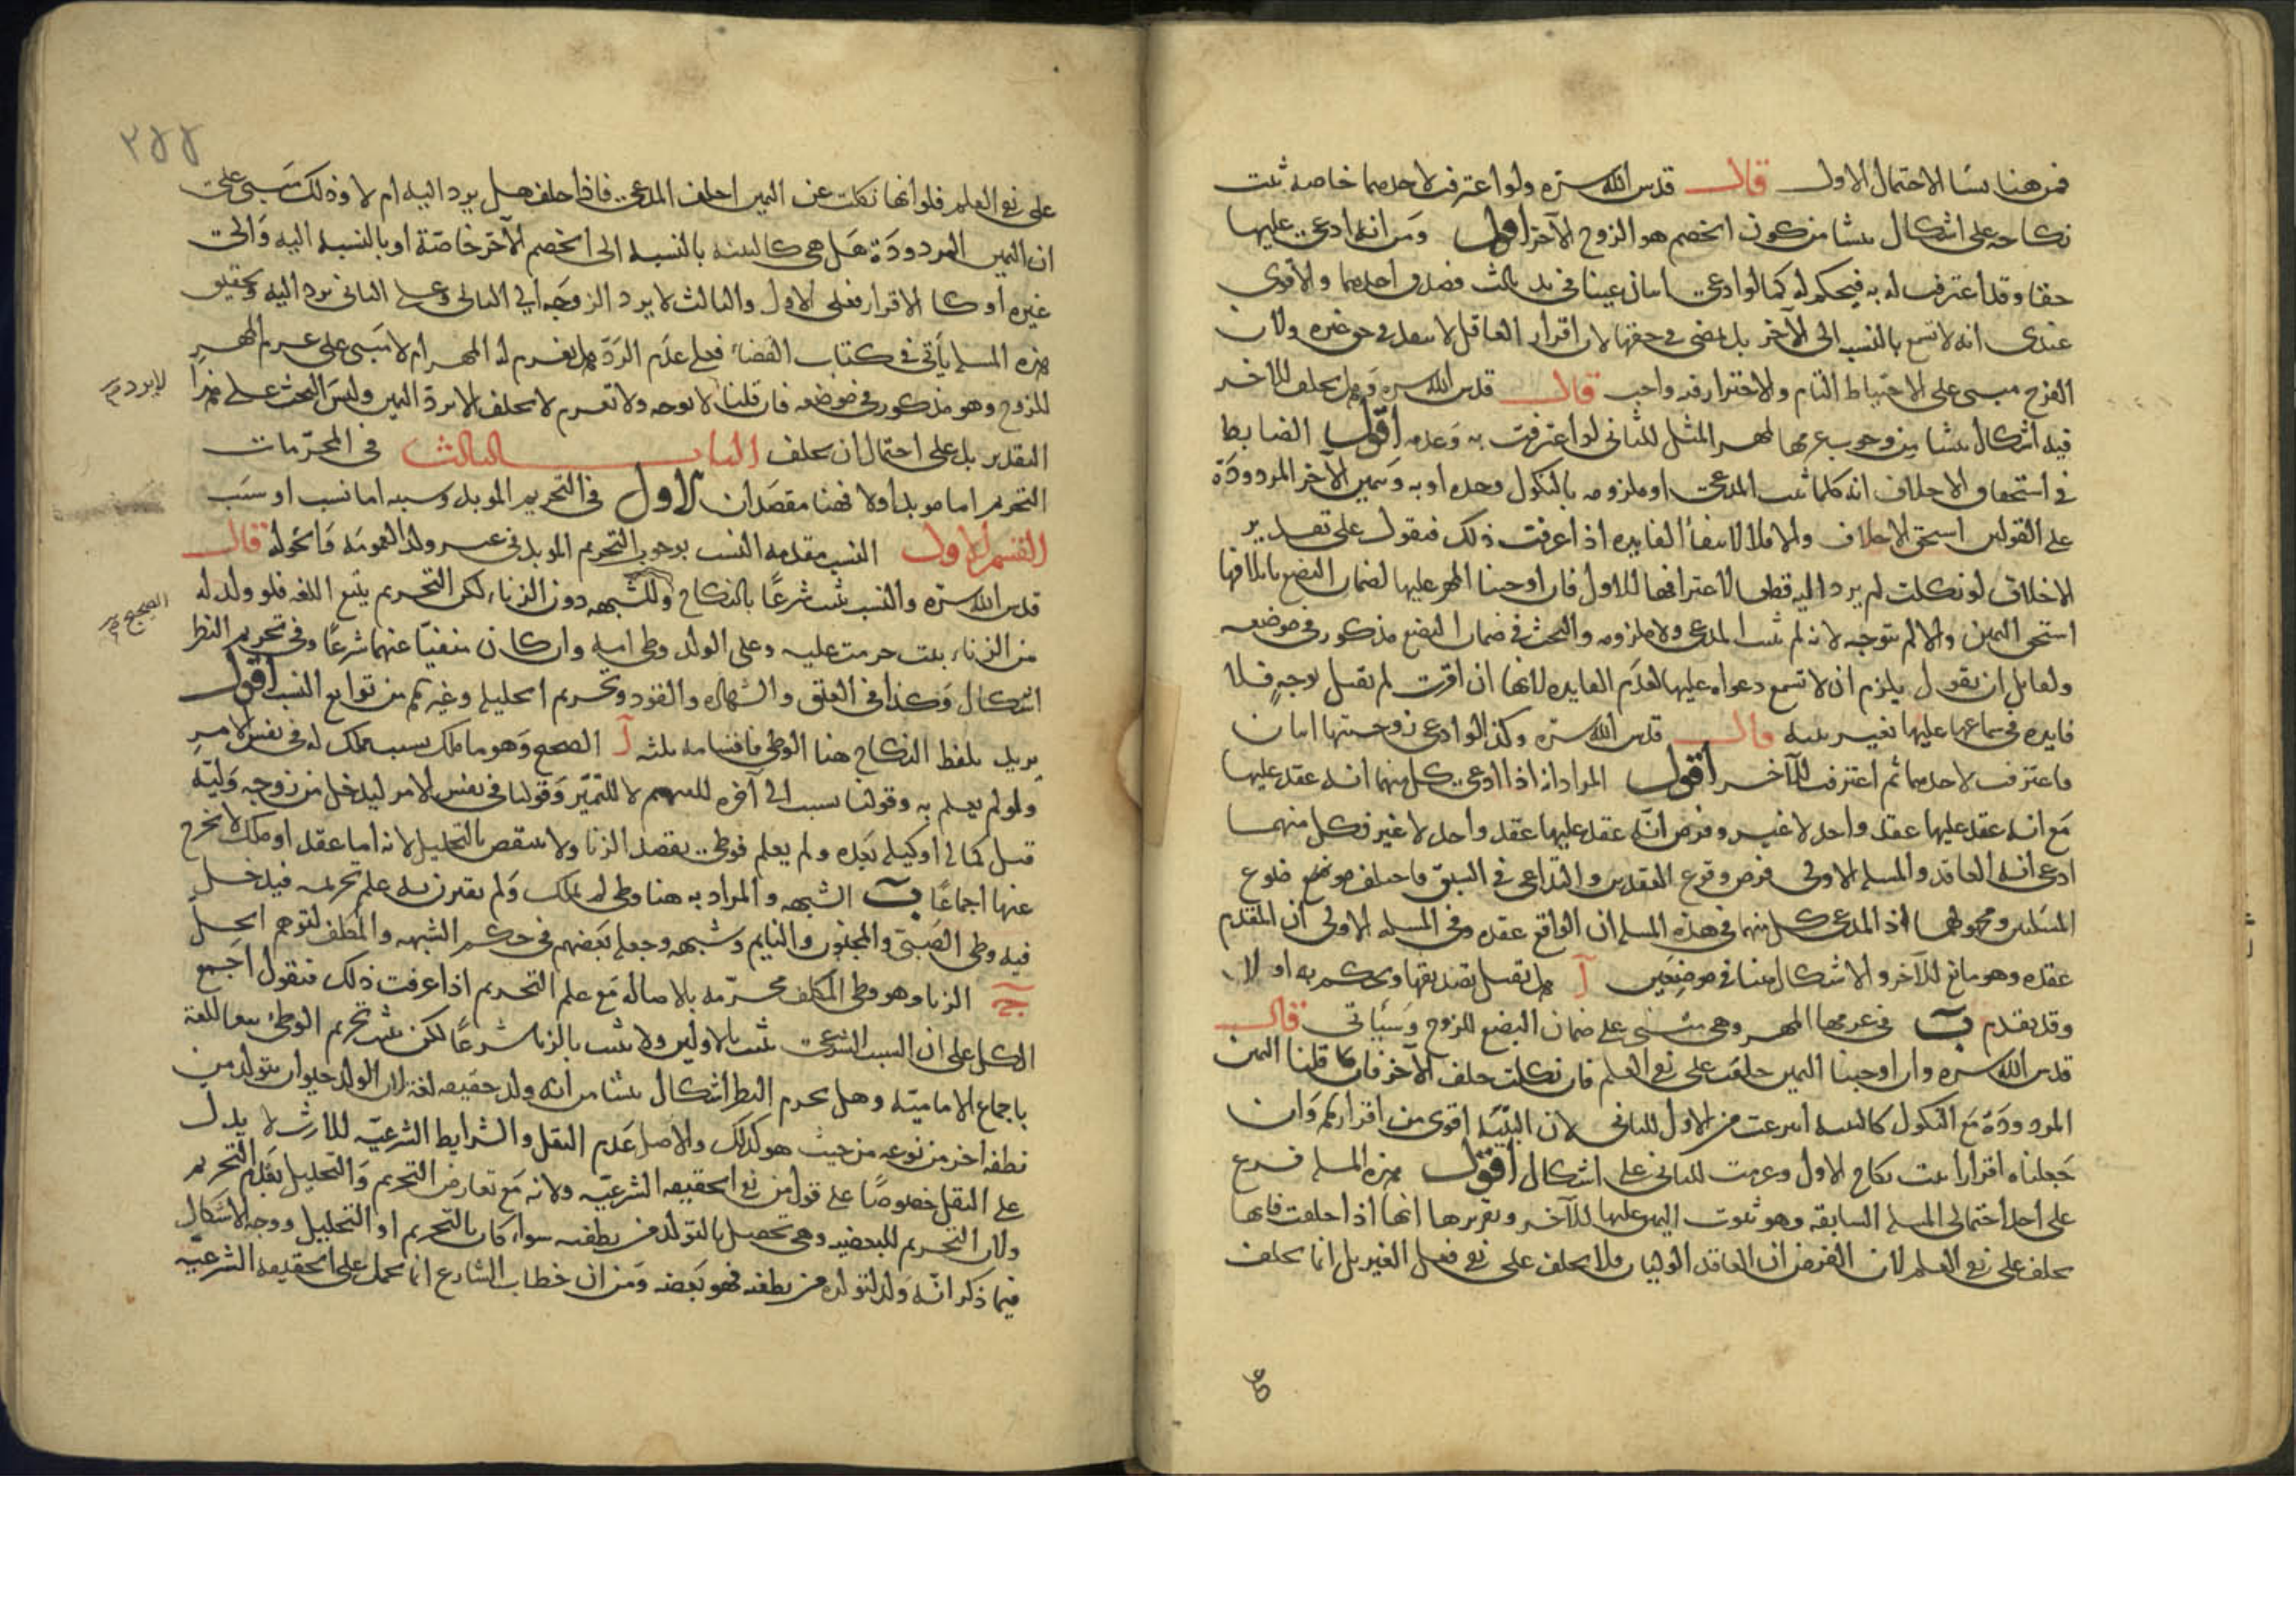 فمن هنا نشأ الاحتمال الاول قال قدس الله سره ولو اعترفت لاحدهما خاصه ثبت
نكاحه على اشكال ينشا من كون الخصم هو الزوج الآخر اقول ومن انه ادعى عليها
حقا وقد اعترفت له به فيحكم له كما لو ادعى اثنان عينا في يد ثالث فصدق احدهما والاقوى
عندى انه لا تسمع بالنسبه الى الآخر بل يمضى في حقها لان اقرار العاقل لا ينفذ في حق غيره ولان
الفرج مبنى على الاحتياط التام والاحتراز فيه واجب قال قدس الله سره وهل يحلف للآخر
فيه اشكال ينشا من وجوب غرمها مهر المثل للثانى لو اعترفت به وعدمه اقول الضابط
في استحقاق الاحلاف انه كلما ثبت المدعى او ملزومه بالنكول وحده او به وبيمين الآخر المردودة
على القولين استحق الاحلاف والا فلا لانتفاء الفايده اذا عرفت ذلك فنقول على تقدير
الاحلاف لو نكلت لم يرد اليه قطعا لاعترافها للاول فان اوجبنا المهر عليها لضمان البضع باتلافها
استحق اليمين والا لم تتوجه لانه لم يثبت المدعى ولا ملزومه والبحث في ضمان البضع مذكور في موضعه
ولقايل ان يقول يلزم ان لا تسمع دعواه عليها لعدم الفايده لانها ان اقرت لم تقبل بوجهٍ فلا
فايده في سماعها عليها بغير بينه قال قدس الله سره وكذا لو ادعى زوجيتها اثنان
فاعترفت لاحدهما ثم اعترفت للآخر اقول المراد انه اذا ادعى كل منهما انه عقد عليها
مع انه عقد عليها عقد واحد لا غير وفرض انه عقد عليها عقد واحد لا غير وكل منهما
ادعى انه العاقد والمسله الاولى فرض وقوع العقدين والتداعى في السبق فاختلف موضوع
المسلتين ومحمولهما اذ المدعى كل منهما في هذه المسله ان الواقع عقده وفى المسله الاولى ان المتقدم
عقده وهو مانع للآخر والاشكال هنا في موضعين آ هل تقبل تصديقها ويحكم به او لا
وقد تقدم ب في غرمها المهر وهى مبنى على ضمان البضع للزوج وسيأتى قال
قدس الله سره وان اوجبنا اليمين حلفت على نفى العلم فان نكلت حلف الآخر فان قلنا اليمين
المردودة مع النكول كالبينه انتزعت من الاول للثانى لان البيّنه اقوى من اقرارهم وان
جعلناه اقرارا ثبت نكاح الاول وغرمت للثانى على اشكال اقول هذه المسله فرع
على احد احتمالى المسله السابقه وهو ثبوت اليمين عليها للآخر وتقريرها انها اذا حلفت فانها
تحلف على نفى العلم لان الفرض ان العاقد الوليان فلا تحلف على نفى فعل الغير بل انما تحلف
على نفى العلم فلو انها نكلت عن اليمين احلف المدعى فاذا حلف هل يرد اليه ام لا وذلك مبنى على
ان اليمين المردودة هل هى كالبينه بالنسبه الى الخصم الآخر خاصّة او بالنسبه اليه والى
غيره او كالاقرار فعلى الاول والثالث لا يرد الزوجه الى الثانى وعلى الثانى ترد اليه وتحقيق
هذه المسله يأتى في كتاب القضاء فعلى عدم الردّ هل يغرم له المهر ام لا مبنى على غرم المهر
للزوج وهو مذكور في موضعه فان قلنا لا توجه ولا تغرم لا يحلف الا برد اليمين وليس البحث على هذا
لا يرد
التقدير بل على احتمال ان يحلف الباب الثالث فى المحرّمات
التحريم اما موبد او لا فهنا مقصدان الاول في التحريم الموبد وسببه اما نسب او سبب
القسم الاول النسب مقدمه النسب يوجب التحريم الموبد في غير ولد العمومه والخوله قال
قدس الله سره والنسب يثبت شرعًا بالنكاح والشبهه دون الزناء لكن التحريم يتبع اللغه فلو ولد له
الصحيح
من الزناء بنت حرمت عليه وعلى الولد وطى امه وان كان منفيّا عنهما شرعًا وفى تحريم النظر
اشكال وكذا في العتق والشهاده والقود وتحريم الحليله وغيرهم من توابع النسب اقول
يريد بلفظ النكاح هنا الوطى فاقسامه ثلثه آ الصحيح وهو ما ملك بسبب مملك له في نفس الامر
ولو لم يعلم به وقولنا بسبب الى آخره للتعميم لا للتميّز وقولنا في نفس الامر ليدخل من زوجه وليّه
قبل كماله او وكيله بعده ولم يعلم فوطى بقصد الزنا ولا ينتقض بالتحليل لانه اما عقد او ملك لا يخرج
عنها اجماعًا ب الشبهه والمراد به هنا وطى لم يملك ولم يقترن به علم تحريمه فيدخل
فيه وطى الصبّى والمجنون والنايم وشبهه وجعله بعضهم في حكم الشبهه والمكلف لتوهم الحل
ج الزنا وهو وطى المكلف محرّمه بالاصاله مع علم التحريم اذا عرفت ذلك فنقول اجمع
الكل على ان السبب الشرعى يثبت بالاولين ولا يثبت بالزنا شرعًا لكن يثبت تحريم الوطى تبعا للغة
باجماع الاماميّه وهل يحرم النظر اشكال ينشا من انه ولد حقيقه لغة لان الولد حيوان يتولد من
نطفه آخر من نوعه من حيث هو كذلك والاصل عدم النقل والشرايط الشرعيّه للارث لا يدل
على النقل خصوصًا على قول من نفى الحقيقه الشرعيّه ولانه مع تعارض التحريم والتحليل يقدم التحريم
ولان التحريم للبعضيه وهى تحصيل بالتولد من نطفته سواء كان بالتحريم او التحليل ووجه الاشكال
فيما ذكر انه ولد لتولده من نطفته فهو بعضه ومن ان خطاب الشارع انما يحمل على الحقيقه الشرعيّه